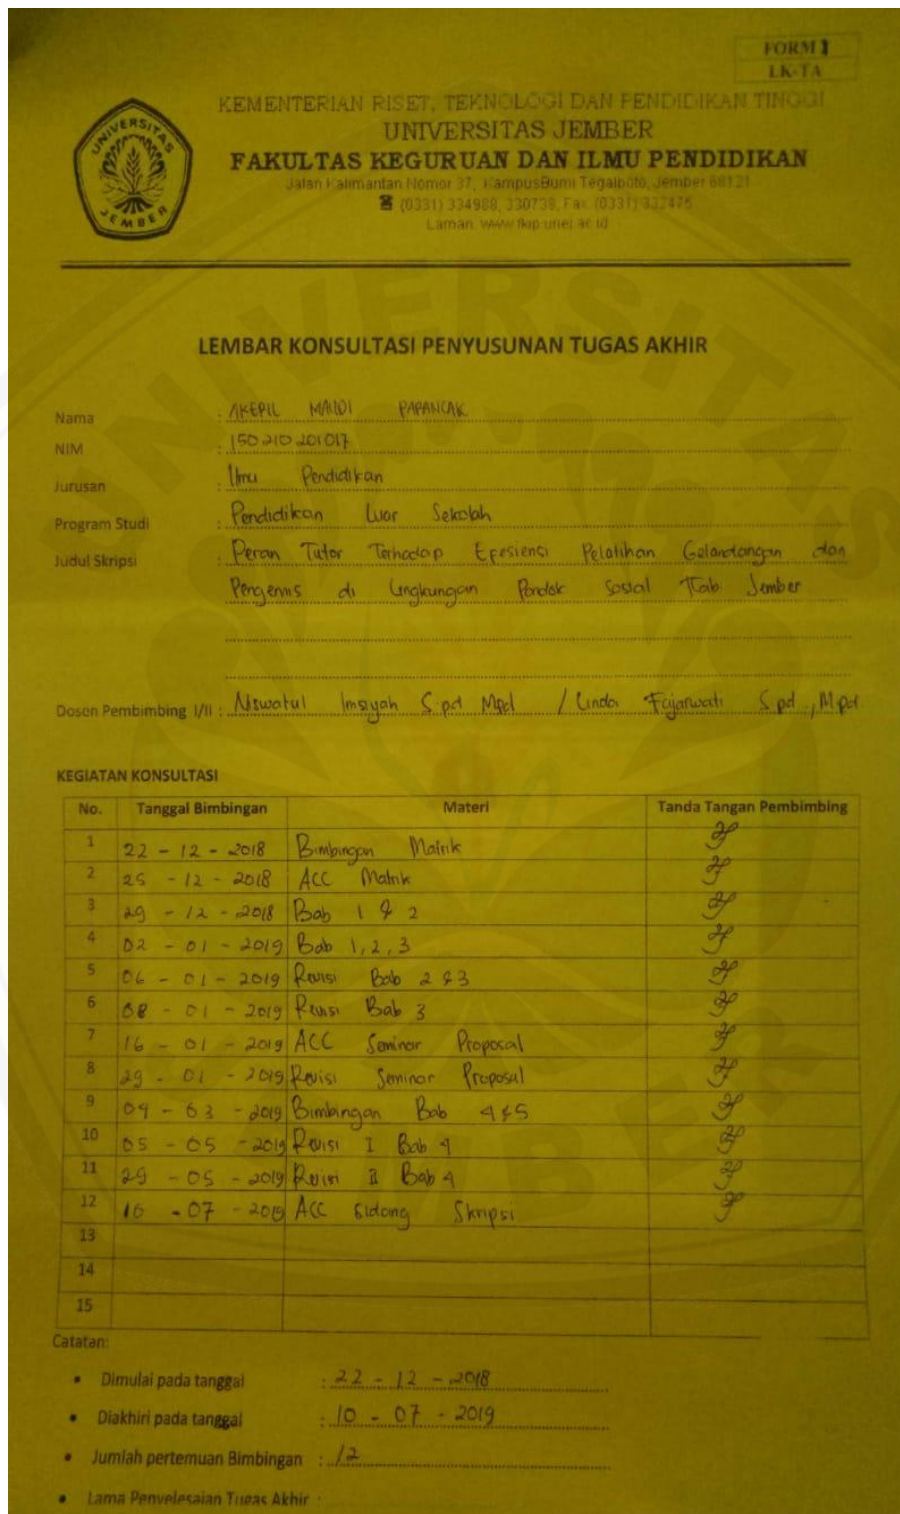 FORM 1
LK-TA
KEMENTERIAN RISET, TEKNOLOGI DAN PENDIDIKAN TINGGI
UNIVERSITAS JEMBER
FAKULTAS KEGURUAN DAN ILMU PENDIDIKAN
Jalan Kalimantan Nomor 37, KampusBumi Tegalboto, Jember 68121
(0331) 334988, 330738, Fax. (0331) 332475
Laman: www.fkip.unej.ac.id
UNIVERSITAS
JEMBER
LEMBAR KONSULTASI PENYUSUNAN TUGAS AKHIR
Nama : AKEPIL PAPANCAK
NIM : 150210201017
Jurusan : Ilmu Pendidikan
Program Studi : Pendidikan Luar Sekolah
Judul Skripsi : Peran Tutor Terhadap Efesiensi Pelatihan Gelandangan dan
Pengemis di Lingkungan Pondok Sosial Kab. Jember
Dosen Pembimbing I/II : Niswatul Imsiyah S.pd Mpd / Linda Fajarwati S.pd, Mpd
KEGIATAN KONSULTASI
No. Tanggal Bimbingan Materi Tanda Tangan Pembimbing
1 22 - 12 - 2018 Bimbingan Matrik
2 25 - 12 - 2018 ACC Matrik
3 29 - 12 - 2018 Bab 1 & 2
4 02 - 01 - 2019 Bab 1, 2, 3
5 06 - 01 - 2019 Revisi Bab 2 & 3
6 08 - 01 - 2019 Revisi Bab 3
7 16 - 01 - 2019 ACC Seminar Proposal
8 29 - 01 - 2019 Revisi Seminar Proposal
9 04 - 03 - 2019 Bimbingan Bab 4 & 5
10 05 - 05 - 2019 Revisi I Bab 4
11 29 - 05 - 2019 Revisi II Bab 4
12 10 - 07 - 2019 ACC Sidang Skripsi
13
14
15
Catatan:
• Dimulai pada tanggal : 22 - 12 - 2018
• Diakhiri pada tanggal : 10 - 07 - 2019
• Jumlah pertemuan Bimbingan : 12
• Lama Penyelesaian Tugas Akhir :
UNIVERSITAS
JEMBER